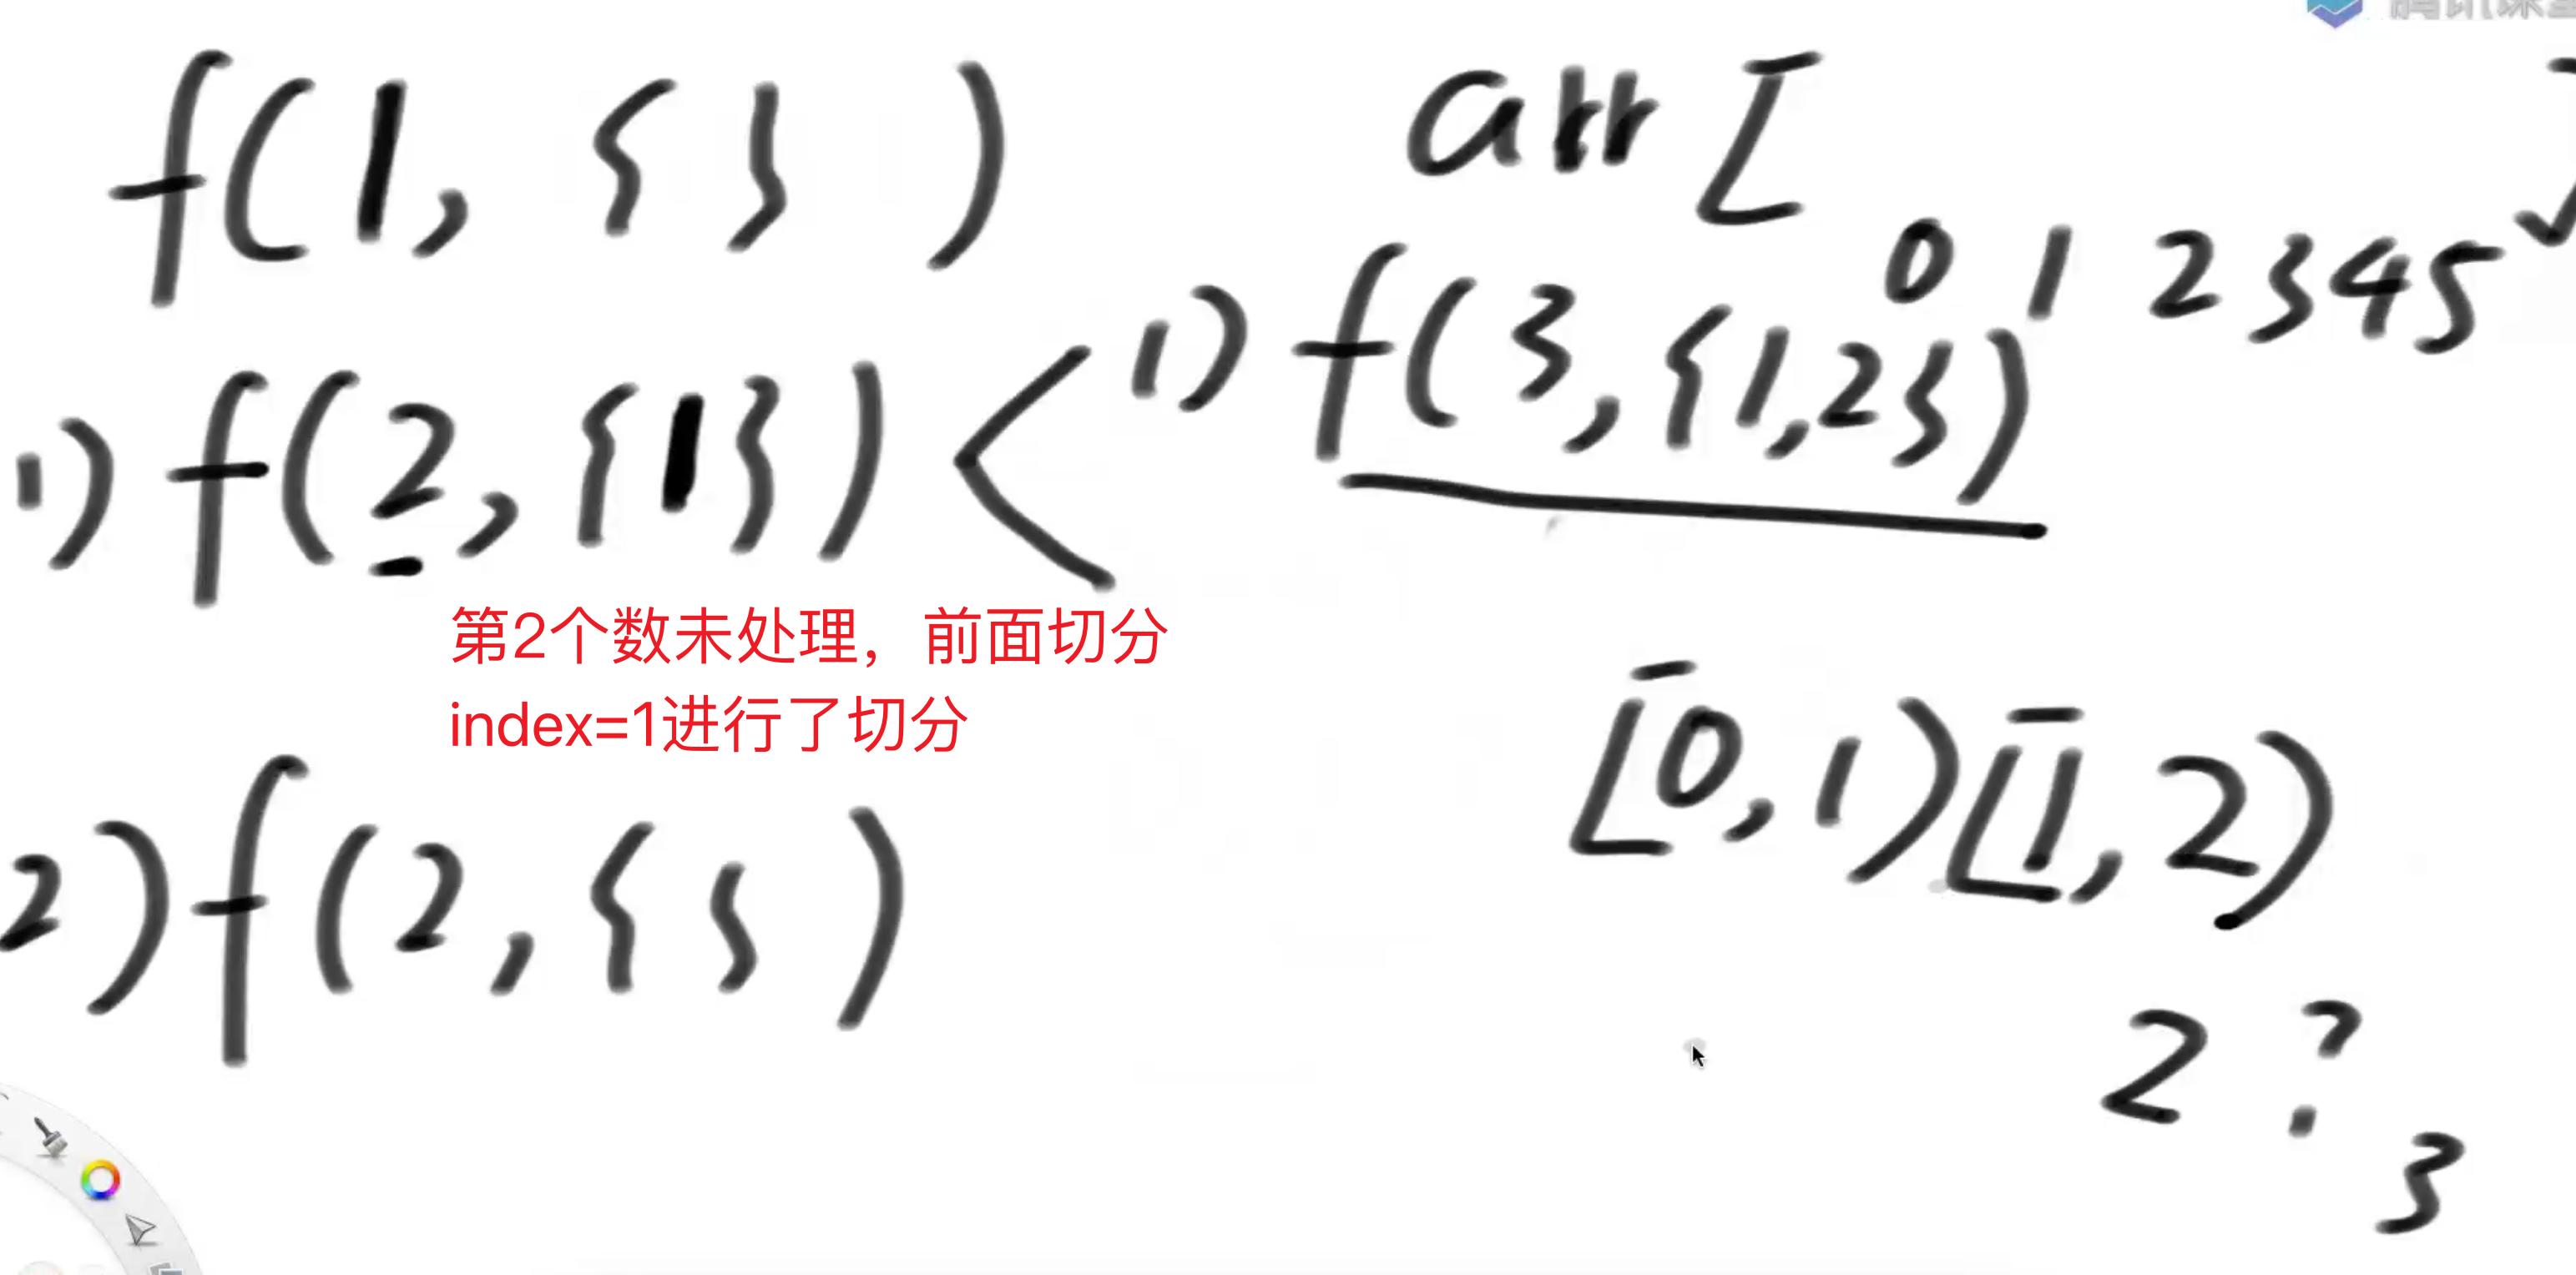 f(1, { })
arr [ ]
0 1 2 3 4 5
1) f(2, {1}) < 1) f(3, {1,2})
第2个数未处理，前面切分
index=1进行了切分
[0,1)[1,2)
2) f(2, { })
2 ?
3